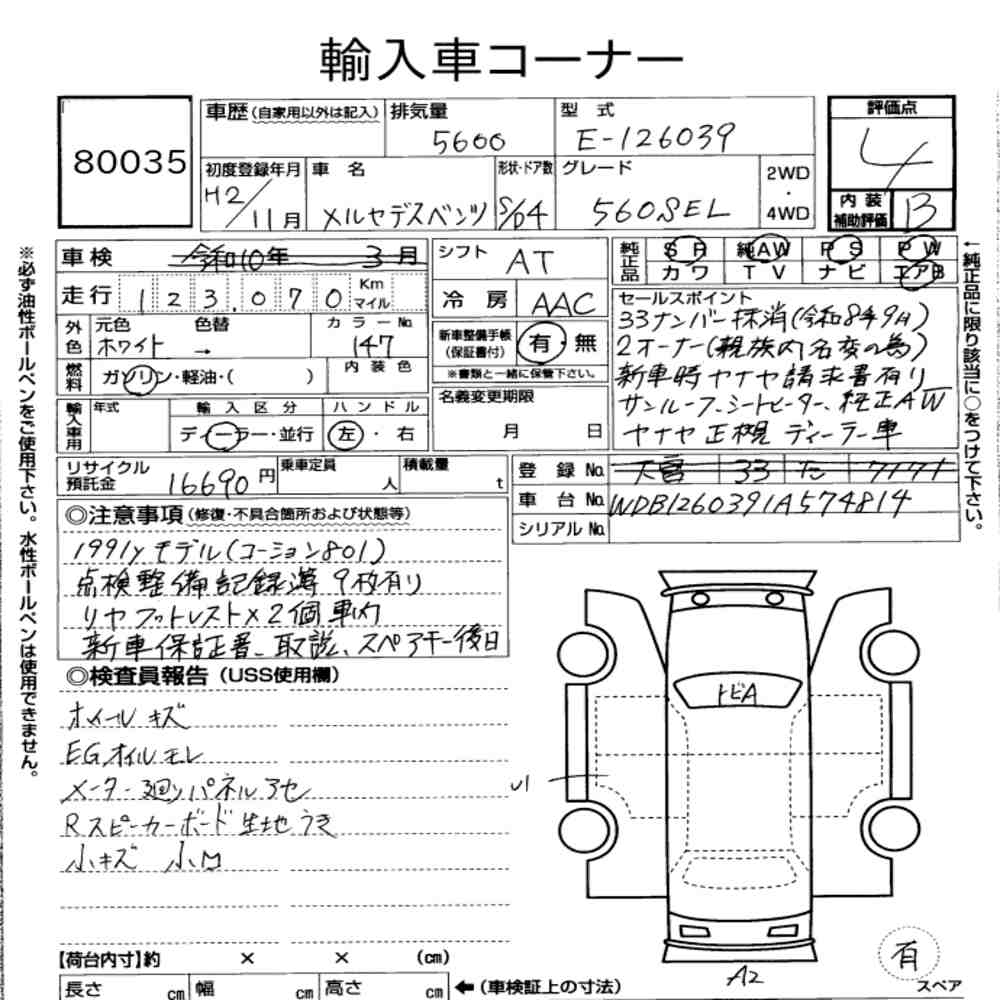 輸入車コーナー
80035
車歴(自家用以外は記入) 排気量 5600 型式 E-126039 評価点 4
初度登録年月 H2/11月 車名 メルセデスベンツ 形状・ドア数 S/D4 グレード 560SEL 2WD・4WD 内装補助評価 B
車検 令和10年 3月 シフト AT 純正品 SR 純AW PS PW
カワ TV ナビ エアB
走行 123,070 Km マイル 冷房 AAC
外色 元色 ホワイト 色替 → カラーNo. 147
燃料 ガソリン・軽油・( ) 内装色
新車整備手帳(保証書付) 有・無
※書類と一緒に保管下さい。
輸入車用 年式 輸入区分 ディーラー・並行 ハンドル 左・右
名義変更期限 月 日
セールスポイント
33ナンバー抹消(令和8年9月)
2オーナー(親族内名変の為)
新車時ヤナセ請求書有り
サンルーフ、シートヒーター、純正AW
ヤナセ正規ディーラー車
リサイクル預託金 16690円 乗車定員 人 積載量 t
登録No. 大宮 33 た 7171
車台No. WDB1260391A574814
シリアルNo.
◎注意事項(修復・不具合箇所および状態等)
1991yモデル(コーション801)
点検整備記録簿 9枚有り
リヤフットレスト×2個車内
新車保証書、取説、スペアキー後日
◎検査員報告(USS使用欄)
ホイールキズ
EGオイルモレ
メーター廻りパネルアセ
Rスピーカーボード生地うき
小キズ 小凹
トビA
A2
有
スペア
【荷台内寸】約 × × (cm)
長さ cm 幅 cm 高さ cm ←(車検証上の寸法)
※必ず油性ボールペンをご使用下さい。水性ボールペンは使用できません。
←純正品に限り該当に○をつけて下さい。